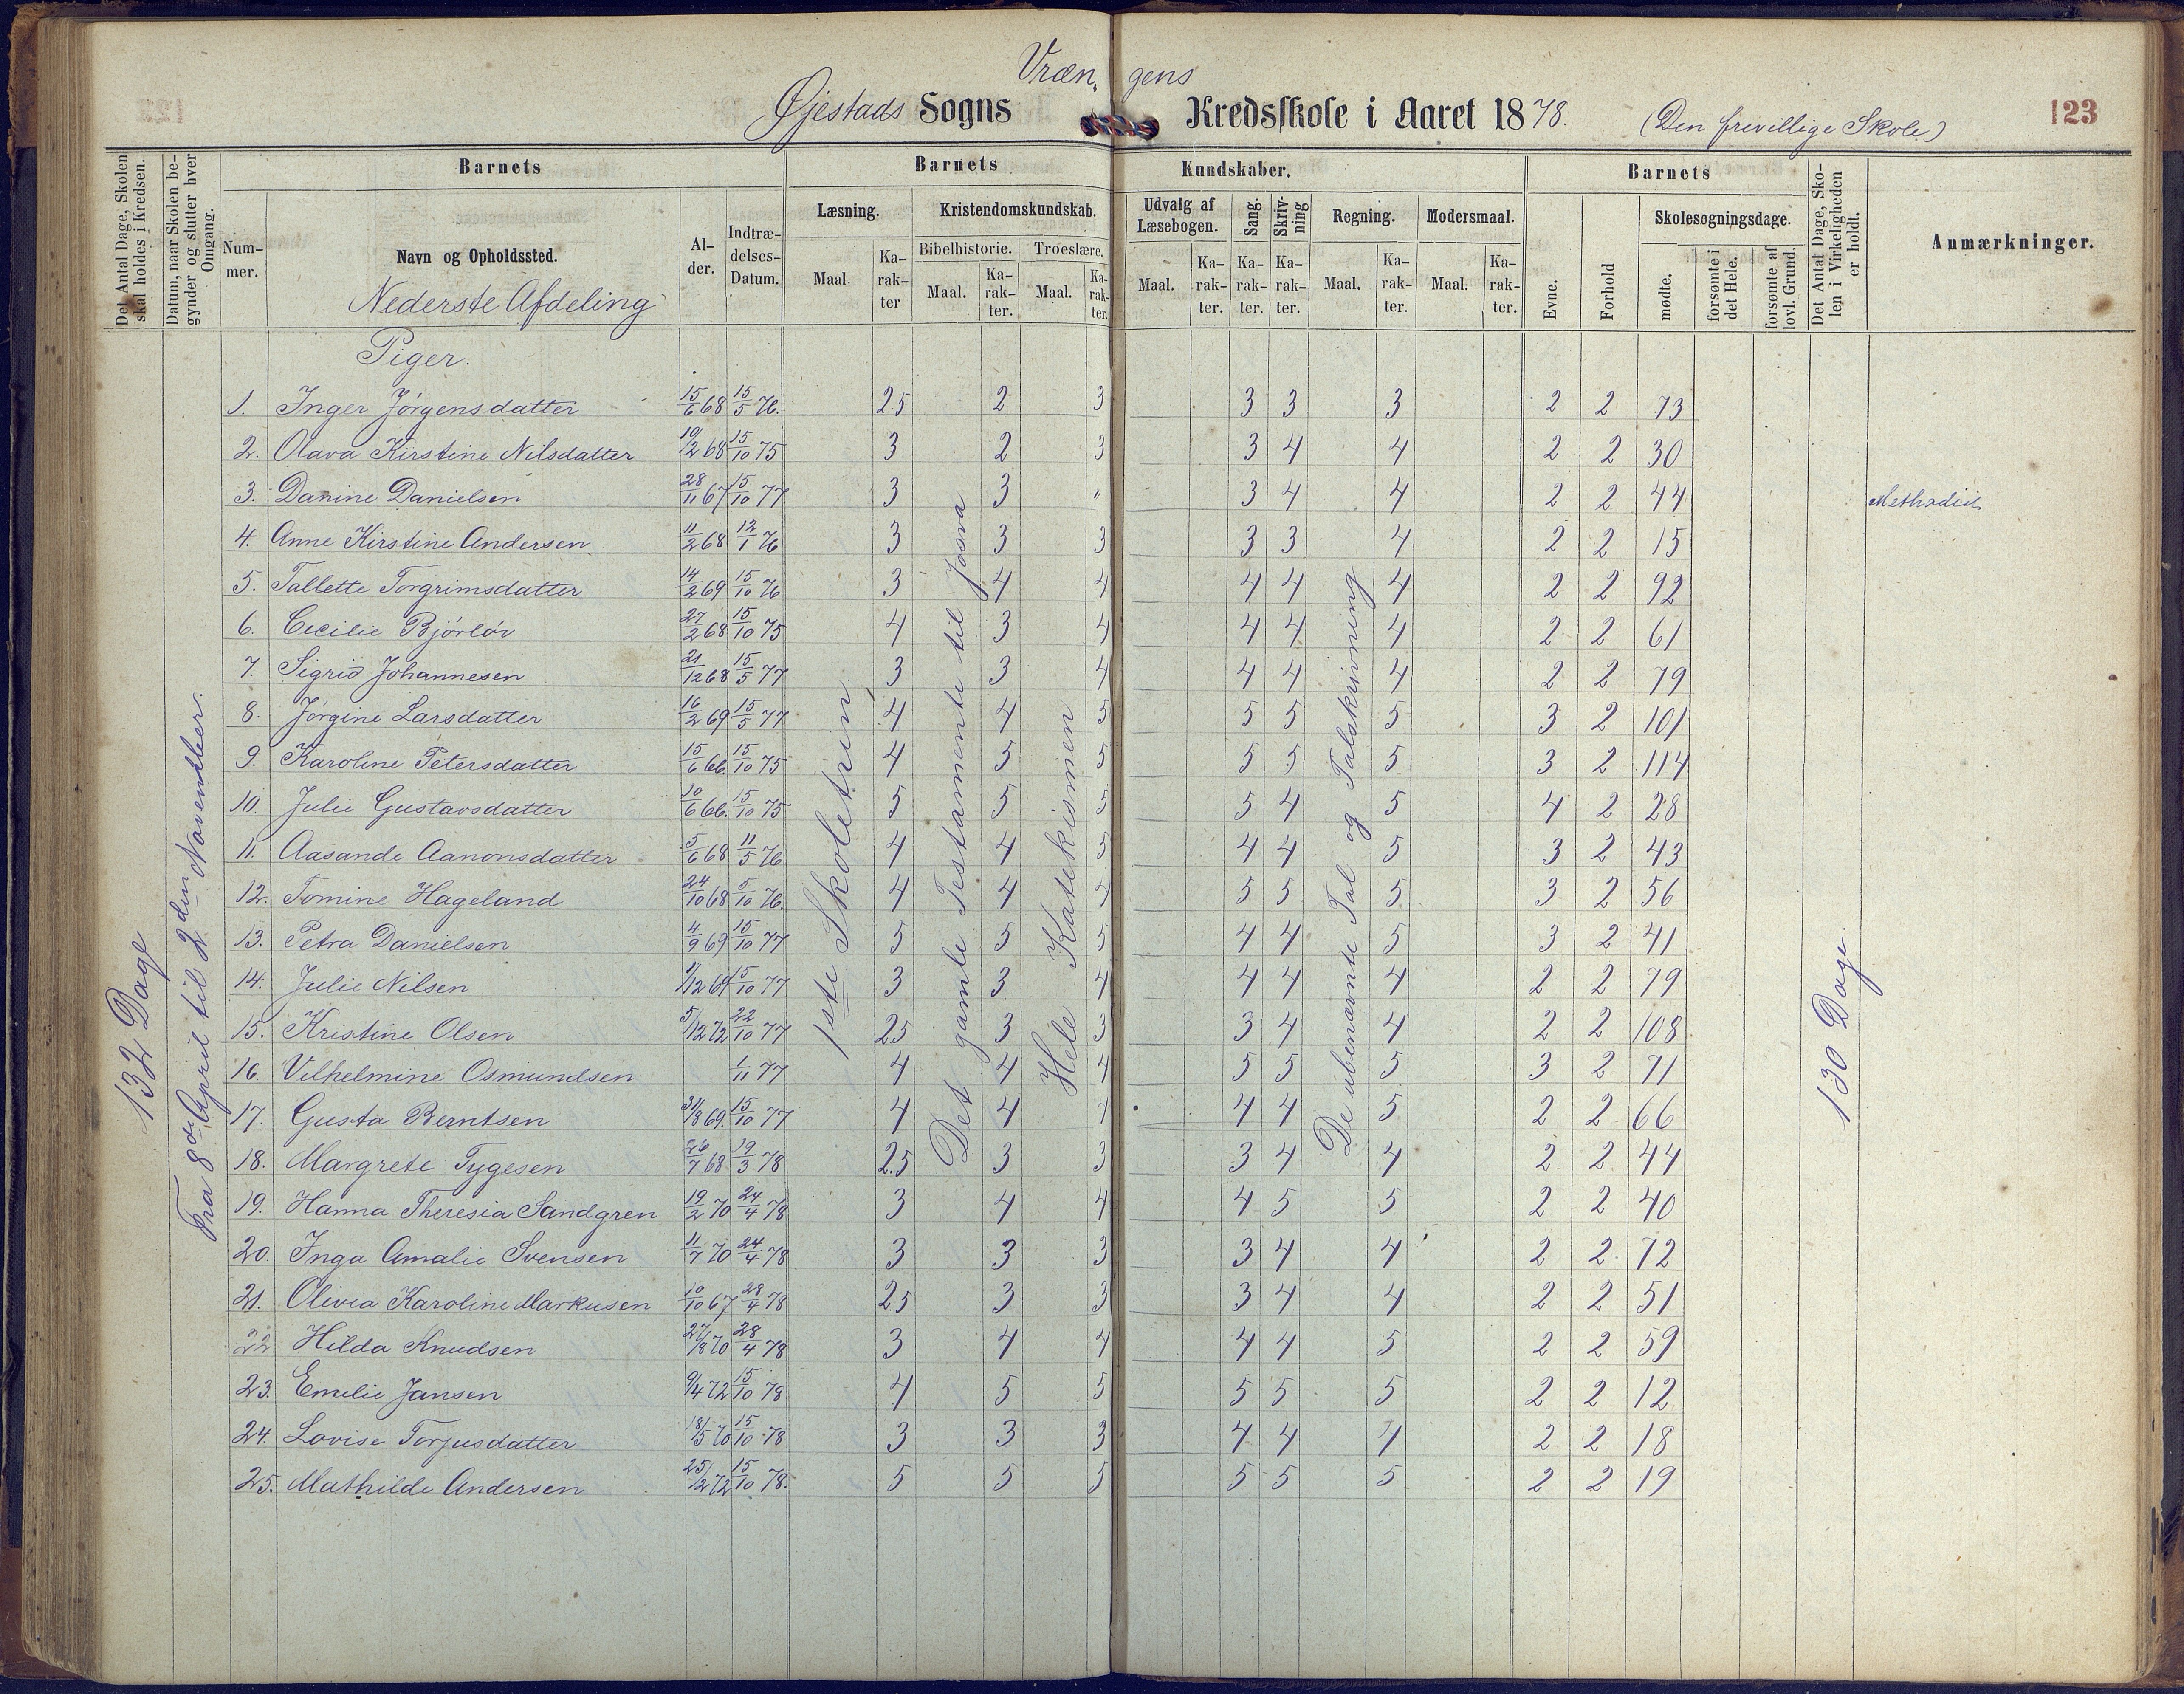 Vræn, gens
Øjestads Sogns Kredsskole i Aaret 1878. (Den frivillige Skole) 123
Det Antal Dage, Skolen skal holdes i Kredsen.
Datum, naar Skolen begynder og slutter hver Omgang.
Barnets Barnets Kundskaber. Barnets
Nummer. Navn og Opholdssted. Alder. Indtrædelses-Datum.
Læsning. Kristendomskundskab. Udvalg af Læsebogen. Sang. Skrivning Regning. Modersmaal.
Bibelhistorie. Troeslære.
Maal. Karakter Maal. Karakter. Maal. Karakter. Maal. Karakter. Karakter. Karakter. Maal. Karakter. Maal. Karakter.
Evne. Forhold Skolesøgningsdage. mødte. forsømte i det Hele. forsømte af lovl. Grund.
Det Antal Dage, Skolen i Virkeligheden er holdt.
Anmærkninger.
Nederste Afdeling
Piger.
132 Dage
Fra 8de April til 2den November.
1ste Skoletrin
Det gamle Testamente til Josva
Hele Katekismen
De ubenævnte Tal og Talskrivning
130 Dage.
1. Inger Jørgensdatter 15/6 68 15/5 76. 2.5 2 3 3 3 3 2 2 73
2. Olava Kirstine Nilsdatter 10/2 68 15/10 75 3 2 3 3 4 4 2 2 30
3. Danine Danielsen 28/11 67 15/10 77 3 3 " 3 4 4 2 2 44 Methodist
4. Anne Kirstine Andersen 11/2 68 12/1 76 3 3 3 3 3 4 2 2 15
5. Tallette Torgrimsdatter 14/2 69 15/10 76 3 4 4 4 4 4 2 2 92
6. Cecilie Bjørløv 27/2 68 15/10 75 4 3 4 4 4 4 2 2 61
7. Sigrid Johannesen 21/12 68 15/5 77 3 3 4 4 4 4 2 2 79
8. Jørgine Larsdatter 16/2 69 15/5 77 4 4 5 5 5 5 3 2 101
9. Karoline Petersdatter 15/6 66. 15/10 75 4 5 5 5 5 5 3 2 114
10. Julie Gustavsdatter 10/6 66. 15/10 75 5 5 5 5 4 5 4 2 28
11. Aasande Aanonsdatter 5/6 68 11/5 76 4 4 5 4 4 5 3 2 43
12. Tomine Hageland 24/10 68 5/10 76. 4 4 4 5 5 5 3 2 56
13. Petra Danielsen 4/9 69 15/10 77 5 5 5 4 4 5 3 2 41
14. Julie Nilsen 1/12 69 15/10 77 3 3 4 4 4 4 2 2 79
15. Kristine Olsen 5/12 72 22/10 77 2.5 3 3 3 4 4 2 2 108
16. Vilhelmine Osmundsen 1/11 77 4 4 4 5 5 5 3 2 71
17. Gusta Berntsen 31/8 69. 15/10 77 4 4 4 4 4 5 2 2 66
18. Margrete Tygesen 26/7 68 19/3 78 2.5 3 3 3 4 4 2 2 44
19. Hanna Theresia Sandgren 19/2 70 24/4 78 3 4 4 4 5 5 2 2 40
20. Inga Amalie Svensen 11/7 70 24/4 78 3 3 3 3 4 4 2 2 72
21. Olivia Karoline Markusen 10/10 67 28/4 78 2.5 3 3 3 4 4 2 2 51
22 Hilda Knudsen 27/8 70 28/4 78 3 4 4 4 4 5 2 2 59
23. Emilie Jansen 9/4 72 15/10 78 4 5 5 5 5 5 2 2 12
24. Lovise Torjusdatter 18/5 70 15/10 78 3 3 3 4 4 4 2 2 18
25. Mathilde Andersen 25/12 72 15/10 78. 5 5 5 5 5 5 2 2 19